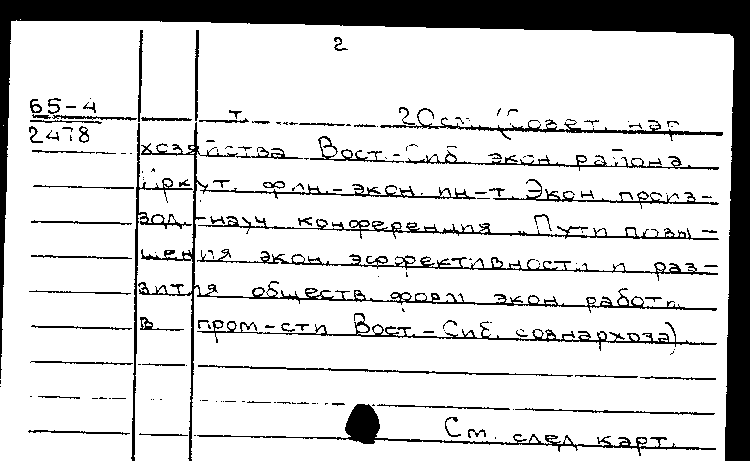 2
65-4
2478
т. 20см. (Совет. нар.
хозяйства Вост.-Сиб. экон. района.
Иркут. фин.-экон. ин-т. Экон. произ-
вод.-науч. конференция „Пути повы-
шения экон. эффективности и раз-
вития обществ. форм экон. работы
в пром-сти Вост.-Сиб. совнархоза).
См. след. карт.